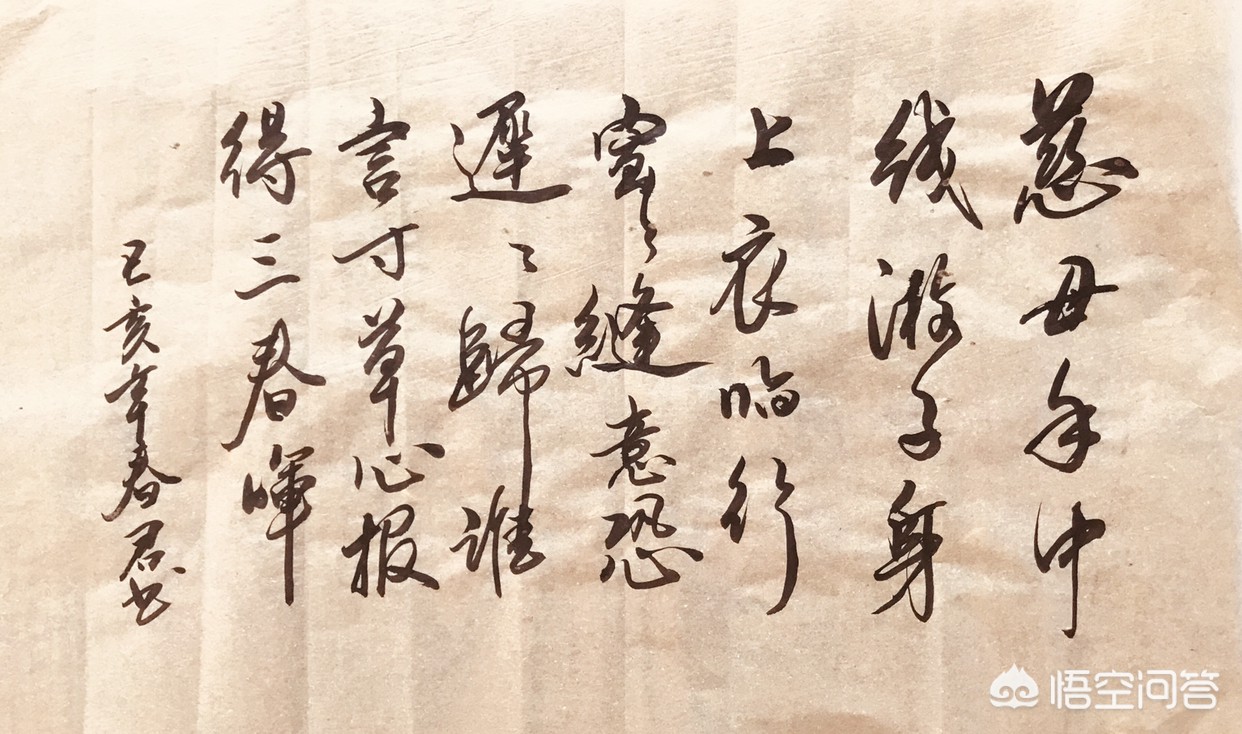 慈母手中
线游子身
上衣临行
密々縫意恐
遲々歸谁
言寸草心报
得三春暉
己亥年春君书
悟空问答